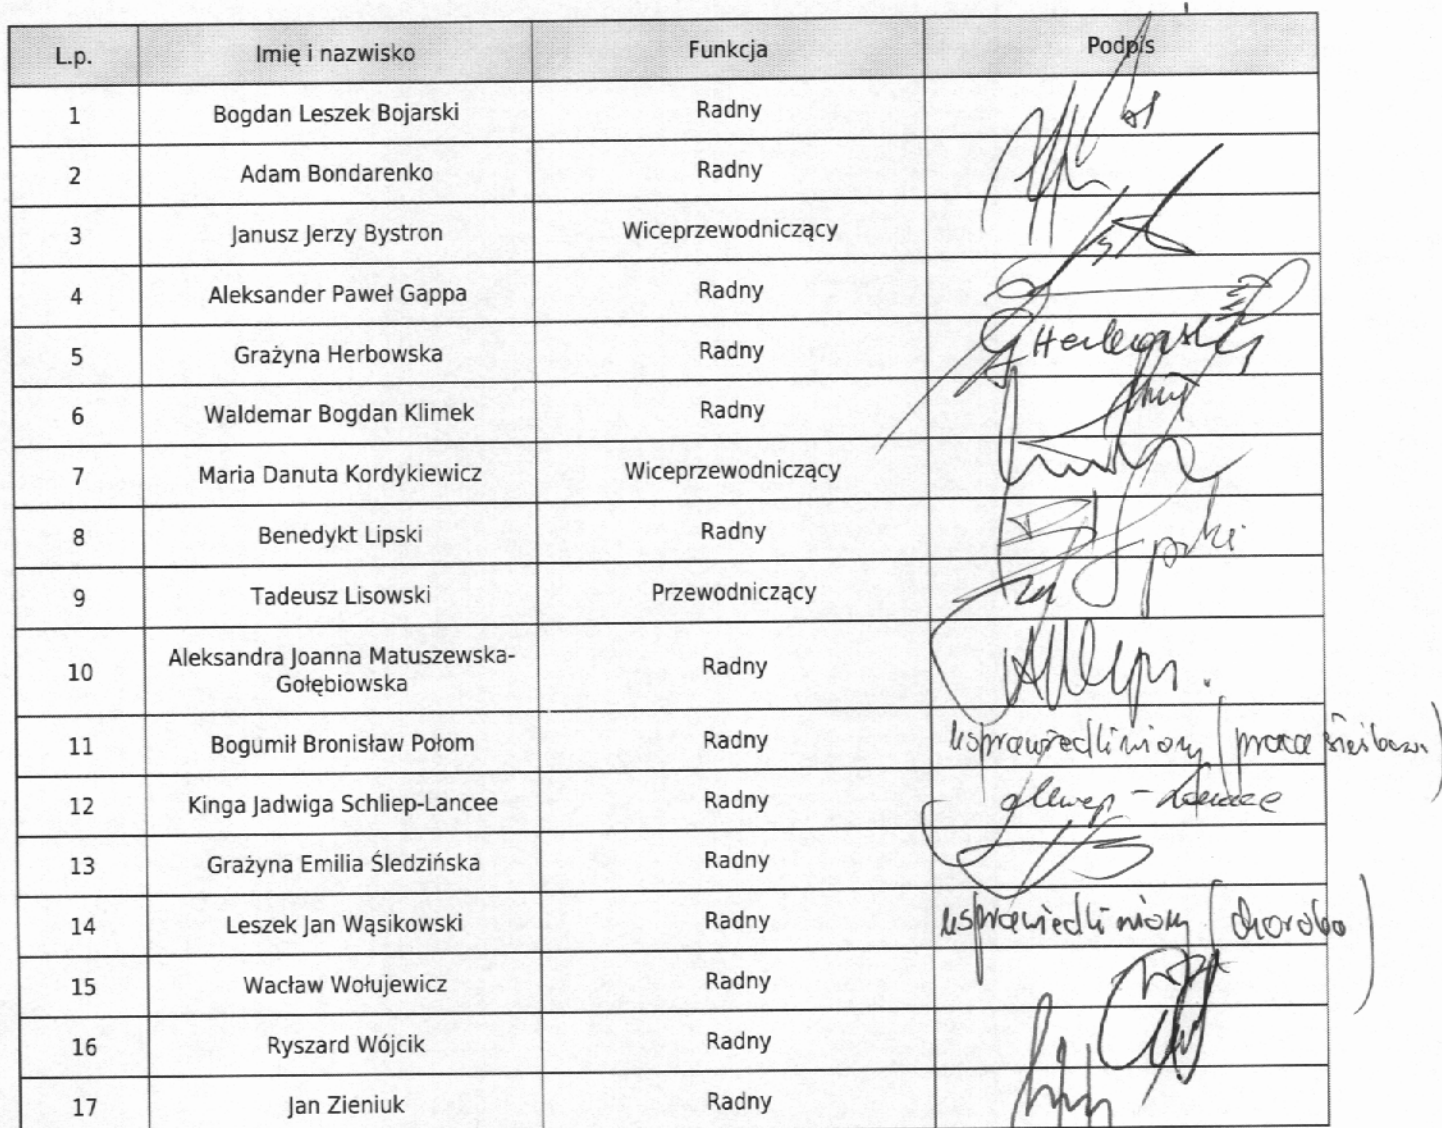 L.p. Imię i nazwisko Funkcja Podpis
1 Bogdan Leszek Bojarski Radny
2 Adam Bondarenko Radny
3 Janusz Jerzy Bystron Wiceprzewodniczący
4 Aleksander Paweł Gappa Radny
5 Grażyna Herbowska Radny GHerbowska
6 Waldemar Bogdan Klimek Radny
7 Maria Danuta Kordykiewicz Wiceprzewodniczący
8 Benedykt Lipski Radny
9 Tadeusz Lisowski Przewodniczący
10 Aleksandra Joanna Matuszewska-
Gołębiowska Radny
11 Bogumił Bronisław Połom Radny usprawiedliwiony (praca
12 Kinga Jadwiga Schliep-Lancee Radny
13 Grażyna Emilia Śledzińska Radny
14 Leszek Jan Wąsikowski Radny usprawiedliwiony (choroba)
15 Wacław Wołujewicz Radny
16 Ryszard Wójcik Radny
17 Jan Zieniuk Radny